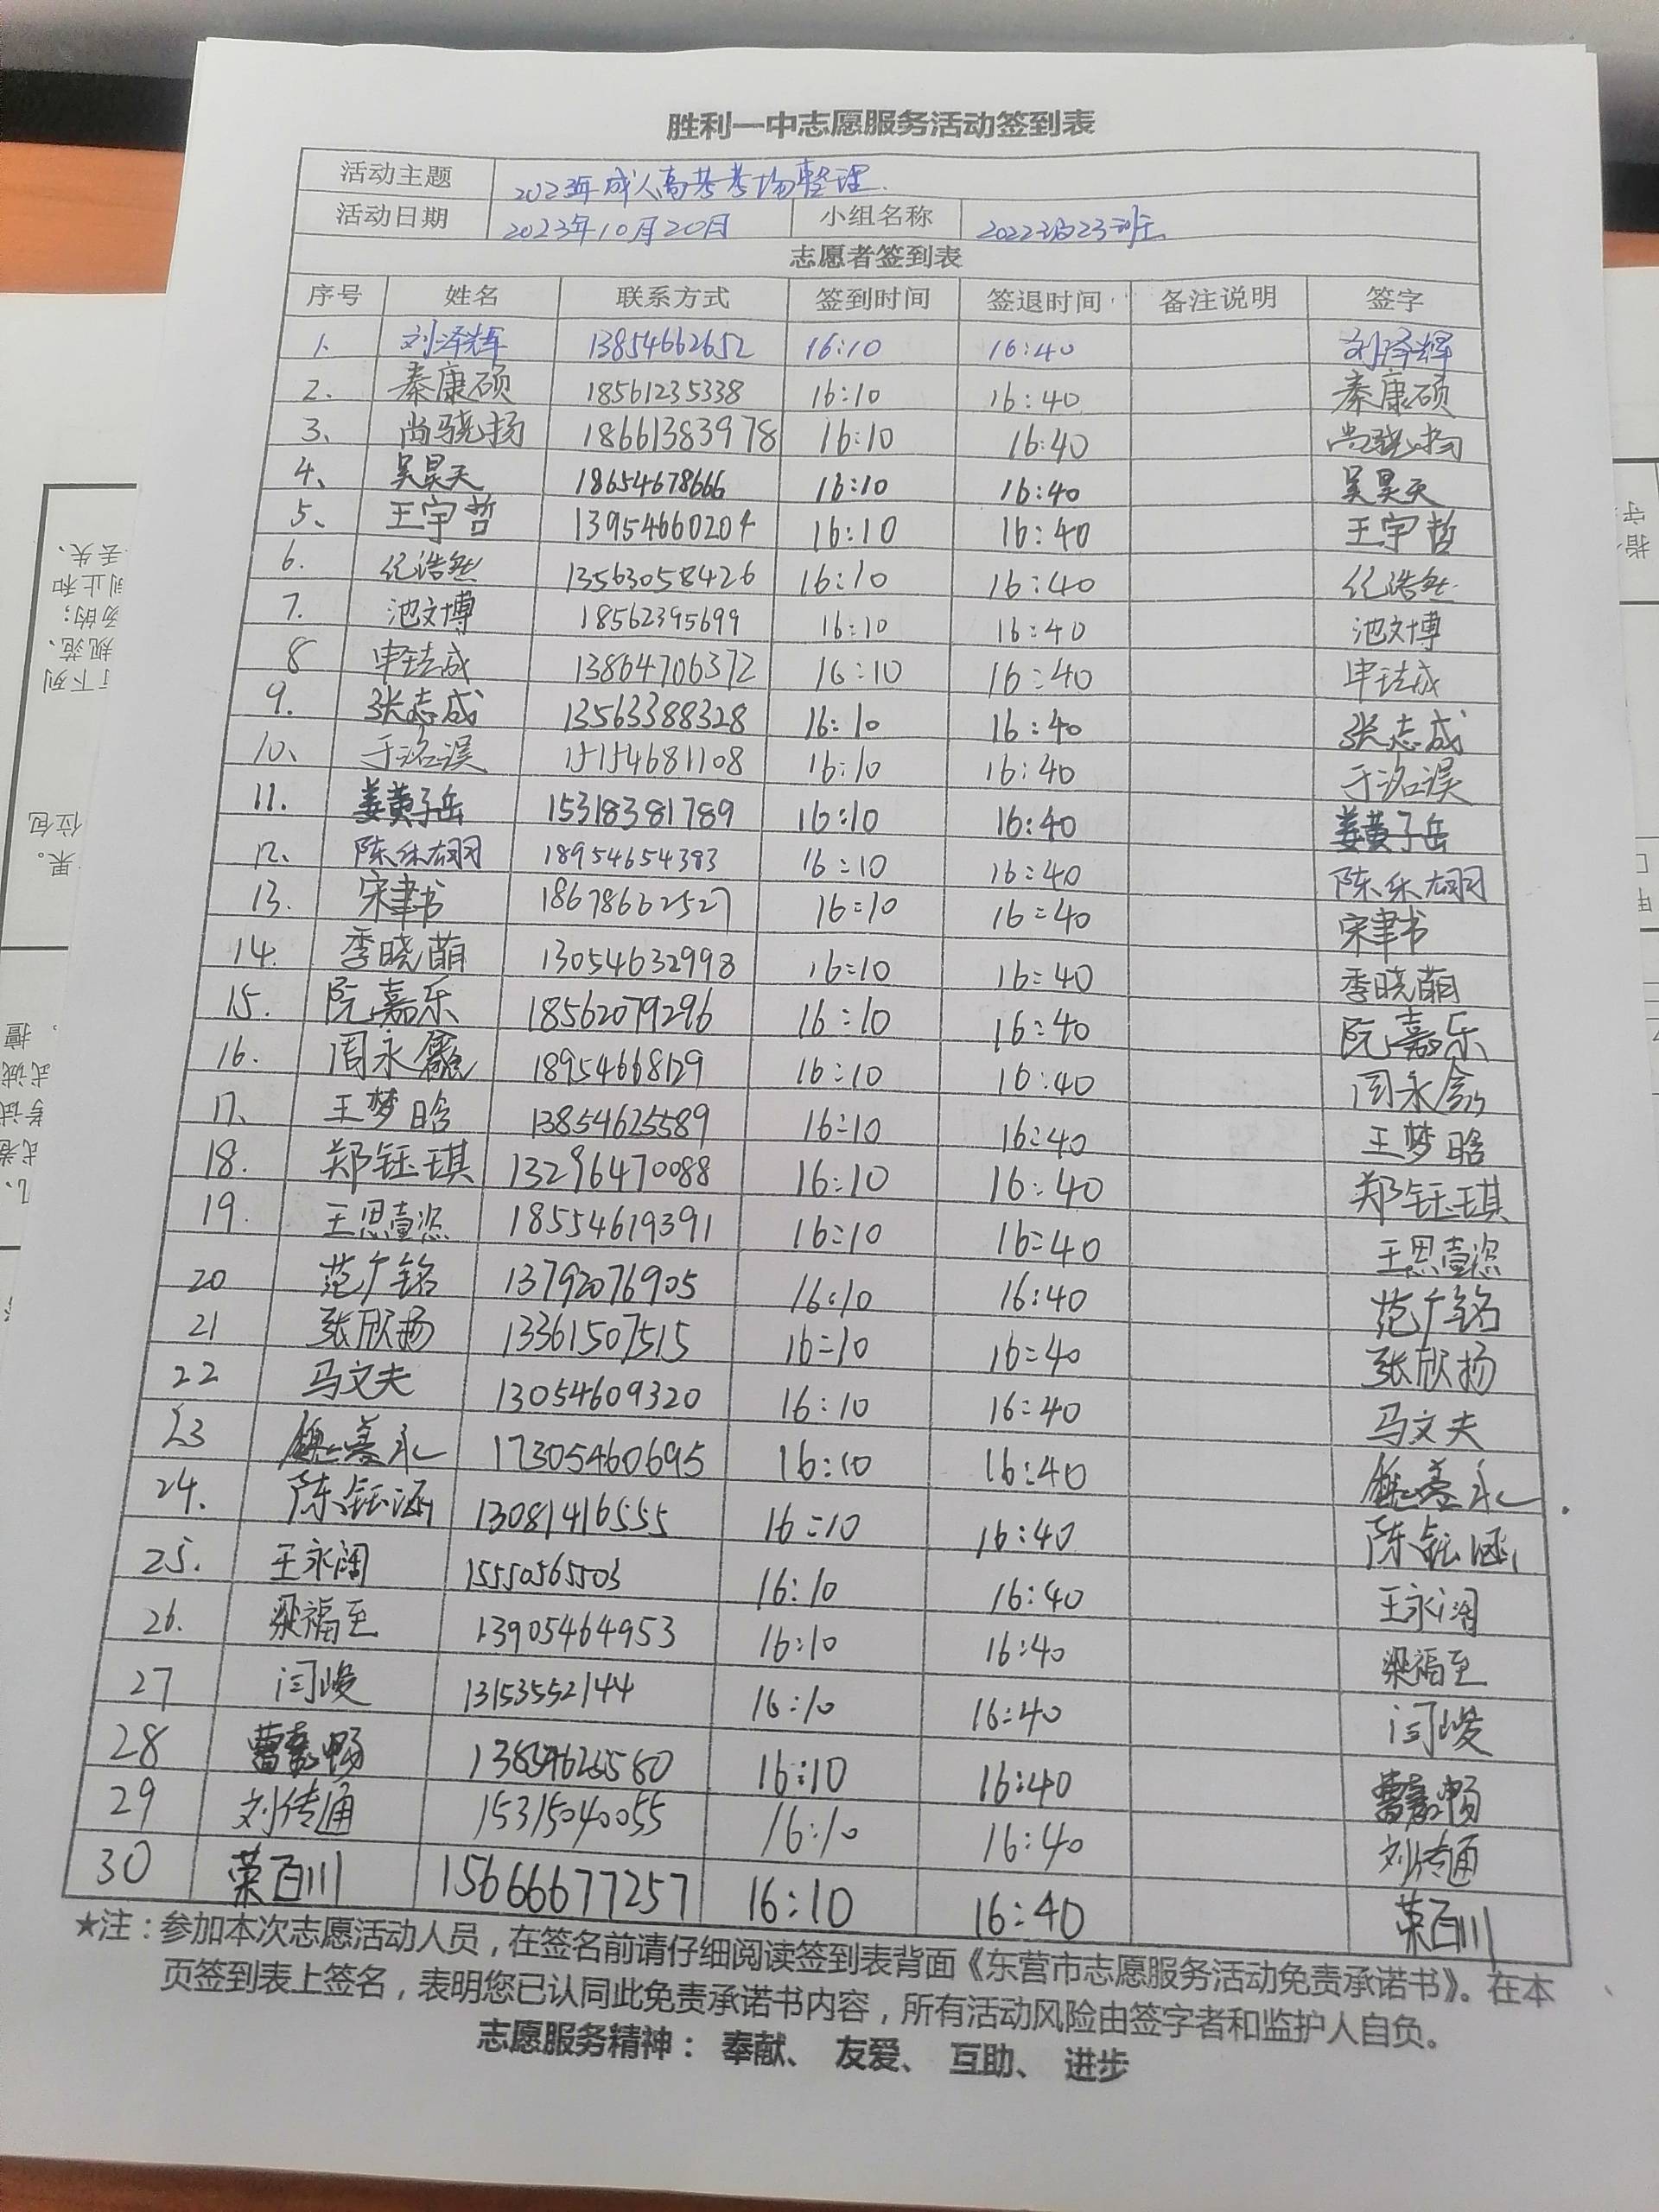 胜利一中志愿服务活动签到表
活动主题 2023年成人高考考场整理.
活动日期 2023年10月20日 小组名称 2022级23班
志愿者签到表
序号 姓名 联系方式 签到时间 签退时间 备注说明 签字
1. 刘泽辉 13854662652 16:10 16:40 刘泽辉
2. 秦康硕 18561235338 16:10 16:40 秦康硕
3、 尚骁扬 18661383978 16:10 16:40 尚骁扬
4、 吴昊天 18654678666 16:10 16:40 吴昊天
5、 王宇哲 13954660204 16:10 16:40 王宇哲
6. 纪浩然 13563058426 16:10 16:40 纪浩然
7. 池文博 18562395699 16:10 16:40 池文博
8 13864706372 16:10 16:40
9. 张志成 13563388328 16:10 16:40 张志成
10、 于洺淏 15154681108 16:10 16:40 于洺淏
11. 姜黄子岳 15318381789 16:10 16:40 姜黄子岳
12、 18954654383 16:10 16:40
13. 宋聿书 18678662527 16:10 16:40 宋聿书
14. 季晓萌 13054632998 16:10 16:40 季晓萌
15. 阮嘉乐 18562079296 16:10 16:40 阮嘉乐
16. 周永 18954668129 16:10 16:40 周永
17. 王梦晗 13854625589 16:10 16:40 王梦晗
18. 郑钰琪 13296470088 16:10 16:40 郑钰琪
19. 王思壹 18554619391 16:10 16:40 王思壹
20 范广铭 13792076905 16:10 16:40 范广铭
21 张欣扬 13361507515 16:10 16:40 张欣扬
22 马文夫 13054609320 16:10 16:40 马文夫
23 17305460695 16:10 16:40
24. 陈钰涵 13081416555 16:10 16:40 陈钰涵
25. 王永阔 15550565503 16:10 16:40 王永阔
26. 梁福至 13905464953 16:10 16:40 梁福至
27 闫峻 13153552144 16:10 16:40 闫峻
28 曹嘉畅 16:10 16:40 曹嘉畅
29 刘传通 15315040055 16:10 16:40 刘传通
30 荣百川 15666677257 16:10 16:40 荣百川
★注：参加本次志愿活动人员，在签名前请仔细阅读签到表背面《东营市志愿服务活动免责承诺书》。在本
页签到表上签名，表明您已认同此免责承诺书内容，所有活动风险由签字者和监护人自负。
志愿服务精神： 奉献、 友爱、 互助、 进步